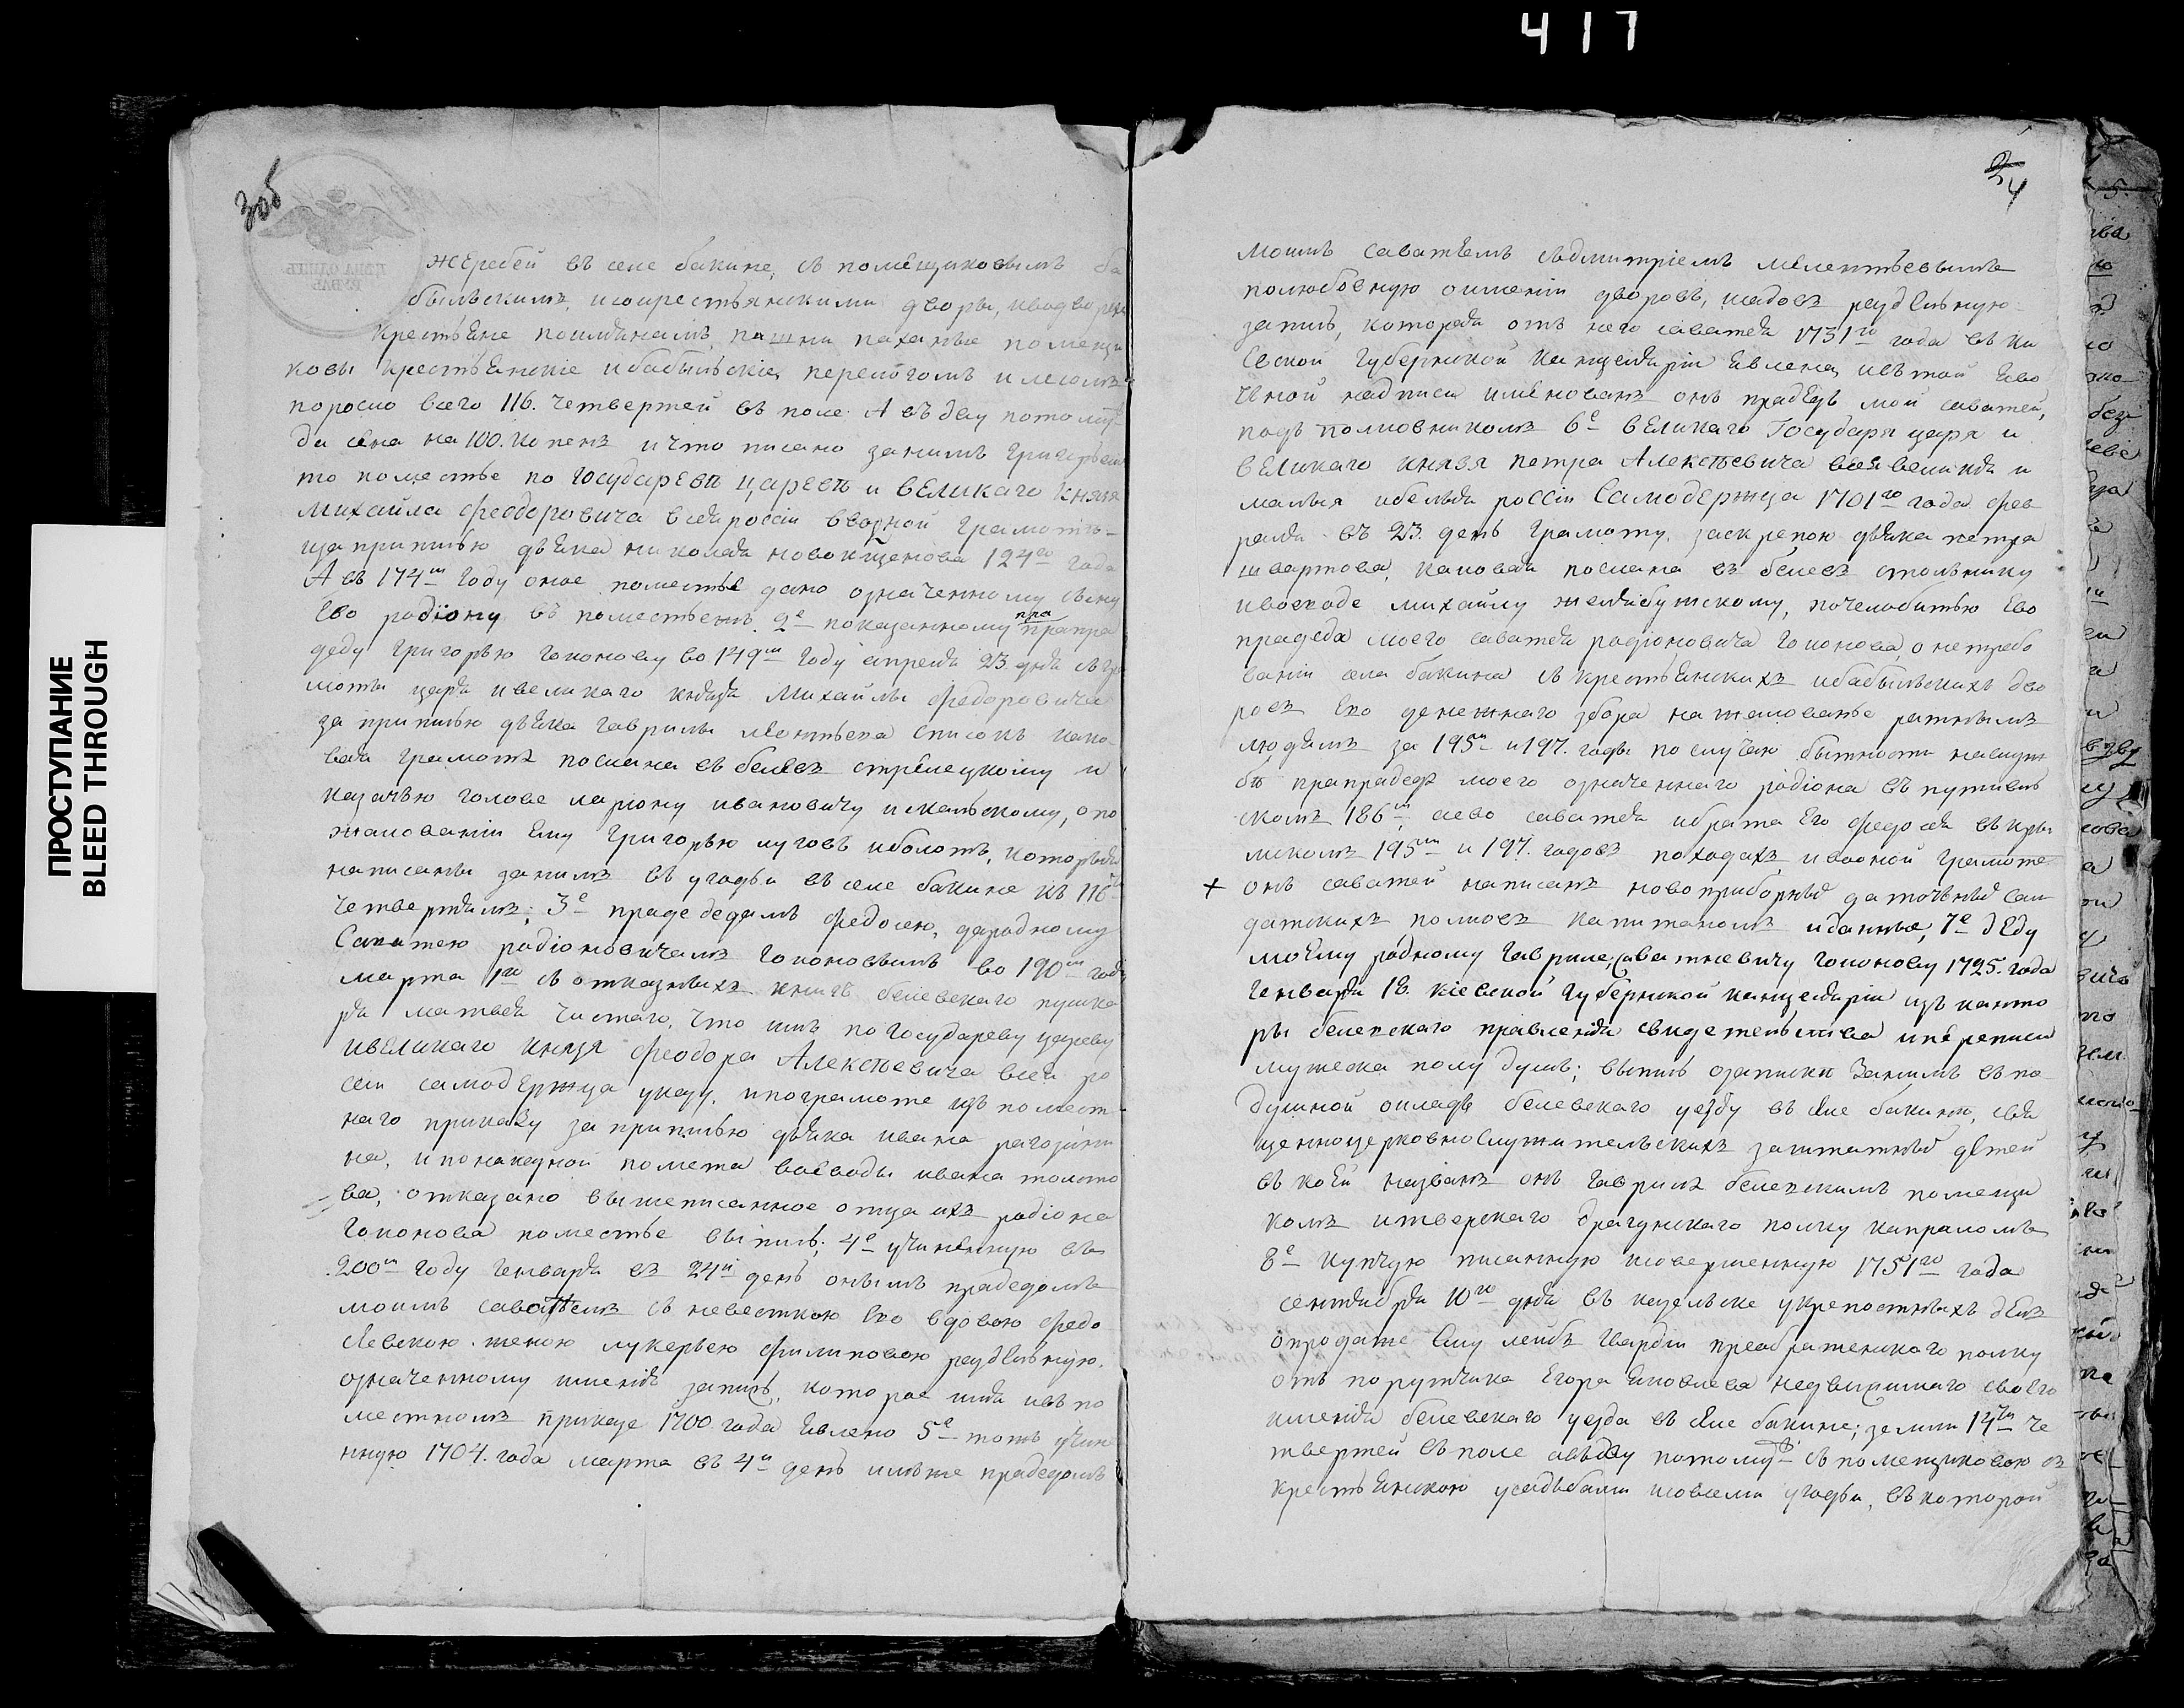 417
ПРОСТУПАНИЕ
BLEED THROUGH
306
жеребей въ селе бакине, съ помещиковымъ ба
быльскими, икрестьянскими дворы, иводворехъ
крестьяне поимянамъ, пашни паханые помещи
ковы крестьянскіе ибобыльскіе, перелогомъ илесомъ
поросло всего 116. четвертей въ поле А въ дву потомужъ
да сена на 100. копенъ ичто писано занимъ Григорьемъ
то поместье по Государевѣ царевѣ и великаго князя
михайла феодоровича всея россіи ввозной грамотѣ
за приписью дьяка николая новокщенова 124го года
А въ 174м году оное поместье дано означенному сыну
Ево родіону въ поместьемъ 2е показанному прапра
пра
деду григорью гоконову во 149м году апреля 23 дня съ гра
моты царя ивеликаго князя Михайлы федоровича
за приписью дьяка гаврилы леонтьева списокъ како
вая грамота послана въ белевъ стрелецкому и
казачью голове лариону ивановичу искальскому, опо
жалованіи ему григорью луговъ иболотъ, которыя
написаны занимъ въ угодьи въ селе бакине къ 116
четвертямъ; 3е прадедедамъ федосею, дародному
Саватею родіоновичамъ гоконовымъ во 190м годѣ
марта 1го съ отказныхъ книгъ белевскаго пушка
ря матвея чистаго, что имъ по государеву цареву
ивеликаго князя феодора Алексѣевича всея ро
сіи самодержца указу, ипограмоте изъ помест
наго приказу за приписью дьяка ивана рагозини
на, ипонаказной помета воеводы ивана толсто
ва, отказано вышеписанное отца ихъ родіона
гоконова поместье выпись; 4е учиненную въ
200м году генваря въ 24й день онымъ прадедомъ
моимъ саватѣемъ съ невесткою Ево вдовою федо
сѣевскою женою лукерьею филиповою раздѣльную.
означенному именію запись, которая имя ивъ по
местномъ приказе 1700 года явлено 5е тотъ учине
нную 1704. года марта въ 4й день имъже прадедомъ
4
моимъ саватѣемъ съдмитріемъ мелентьевымъ
полюбовную оимѣніи дворовъ, исадовъ раздѣльную
запись, которая отъ него саватея 1731го года въ ки
евской губернской канцеляріи явлена, ивъ той яво
чьной надписи именованъ онъ прадедъ мой саватей,
подъ полковникомъ 6е великаго Государя царя и
великаго князя петра Алексѣевича всея великія и
малыя ибелыя россіи Самодержца 1701го года фев
раля въ 23. день грамоту, заскрепою дьяка петра
швартова, каковая послана въ белевъ стольнику
ивоеводе михайлу желябужскому, почелобитью Ево
прадеда моего саватея родіоновича гоконова, о нетребо
ваніи села бакина съ крестьянскихъ ибабыльскихъ дво
ровъ Его денежнаго збора на жалованье ратнымъ
людямъ за 195й и197. годы по случаю бытности наслуж
бѣ прапрадеда моего означеннаго родіона въ путивль
скомъ 186м, аево саватея ибрата Его федосея въ кры
мскомъ 195м и 197. годовъ походахъ, ивоной грамоте
+ онъ саватей написанъ новоприборныхъ даточныхъ сал
датскихъ полковъ капитаномъ иданные, 7е деду
моему родному гавриле, саватѣевичу гоконову 1725. года
генваря 18. кіевской губернской канцеляріи изъ канто
ры белевскаго правленія свидетельства ипереписи
мужеска полу душъ; выпись озаписки Занимъ въ по
душной окладъ белевскаго уезду въ селе бакинѣ, свя
щенноцерковнослужительскихъ заштатныхъ детей
въ коей названъ онъ гаврила белевскимъ помещи
комъ итверскаго драгунскаго полку капраломъ
8е купчую писанную исовершенную 1751го года
сентября 10го дня въ козельске укрепостныхъ делъ
опродаже Ему лейбъ гвардіи преображенскаго полку
отъ порутчика Егора яковлева недвижимаго своего
именія белевскаго уезда въ селе бакине; земли 14ти че
твертей въ поле авъдву потомужъ съ помещиковою
крестьянскою усадьбами исовсеми угодьи, въ которой